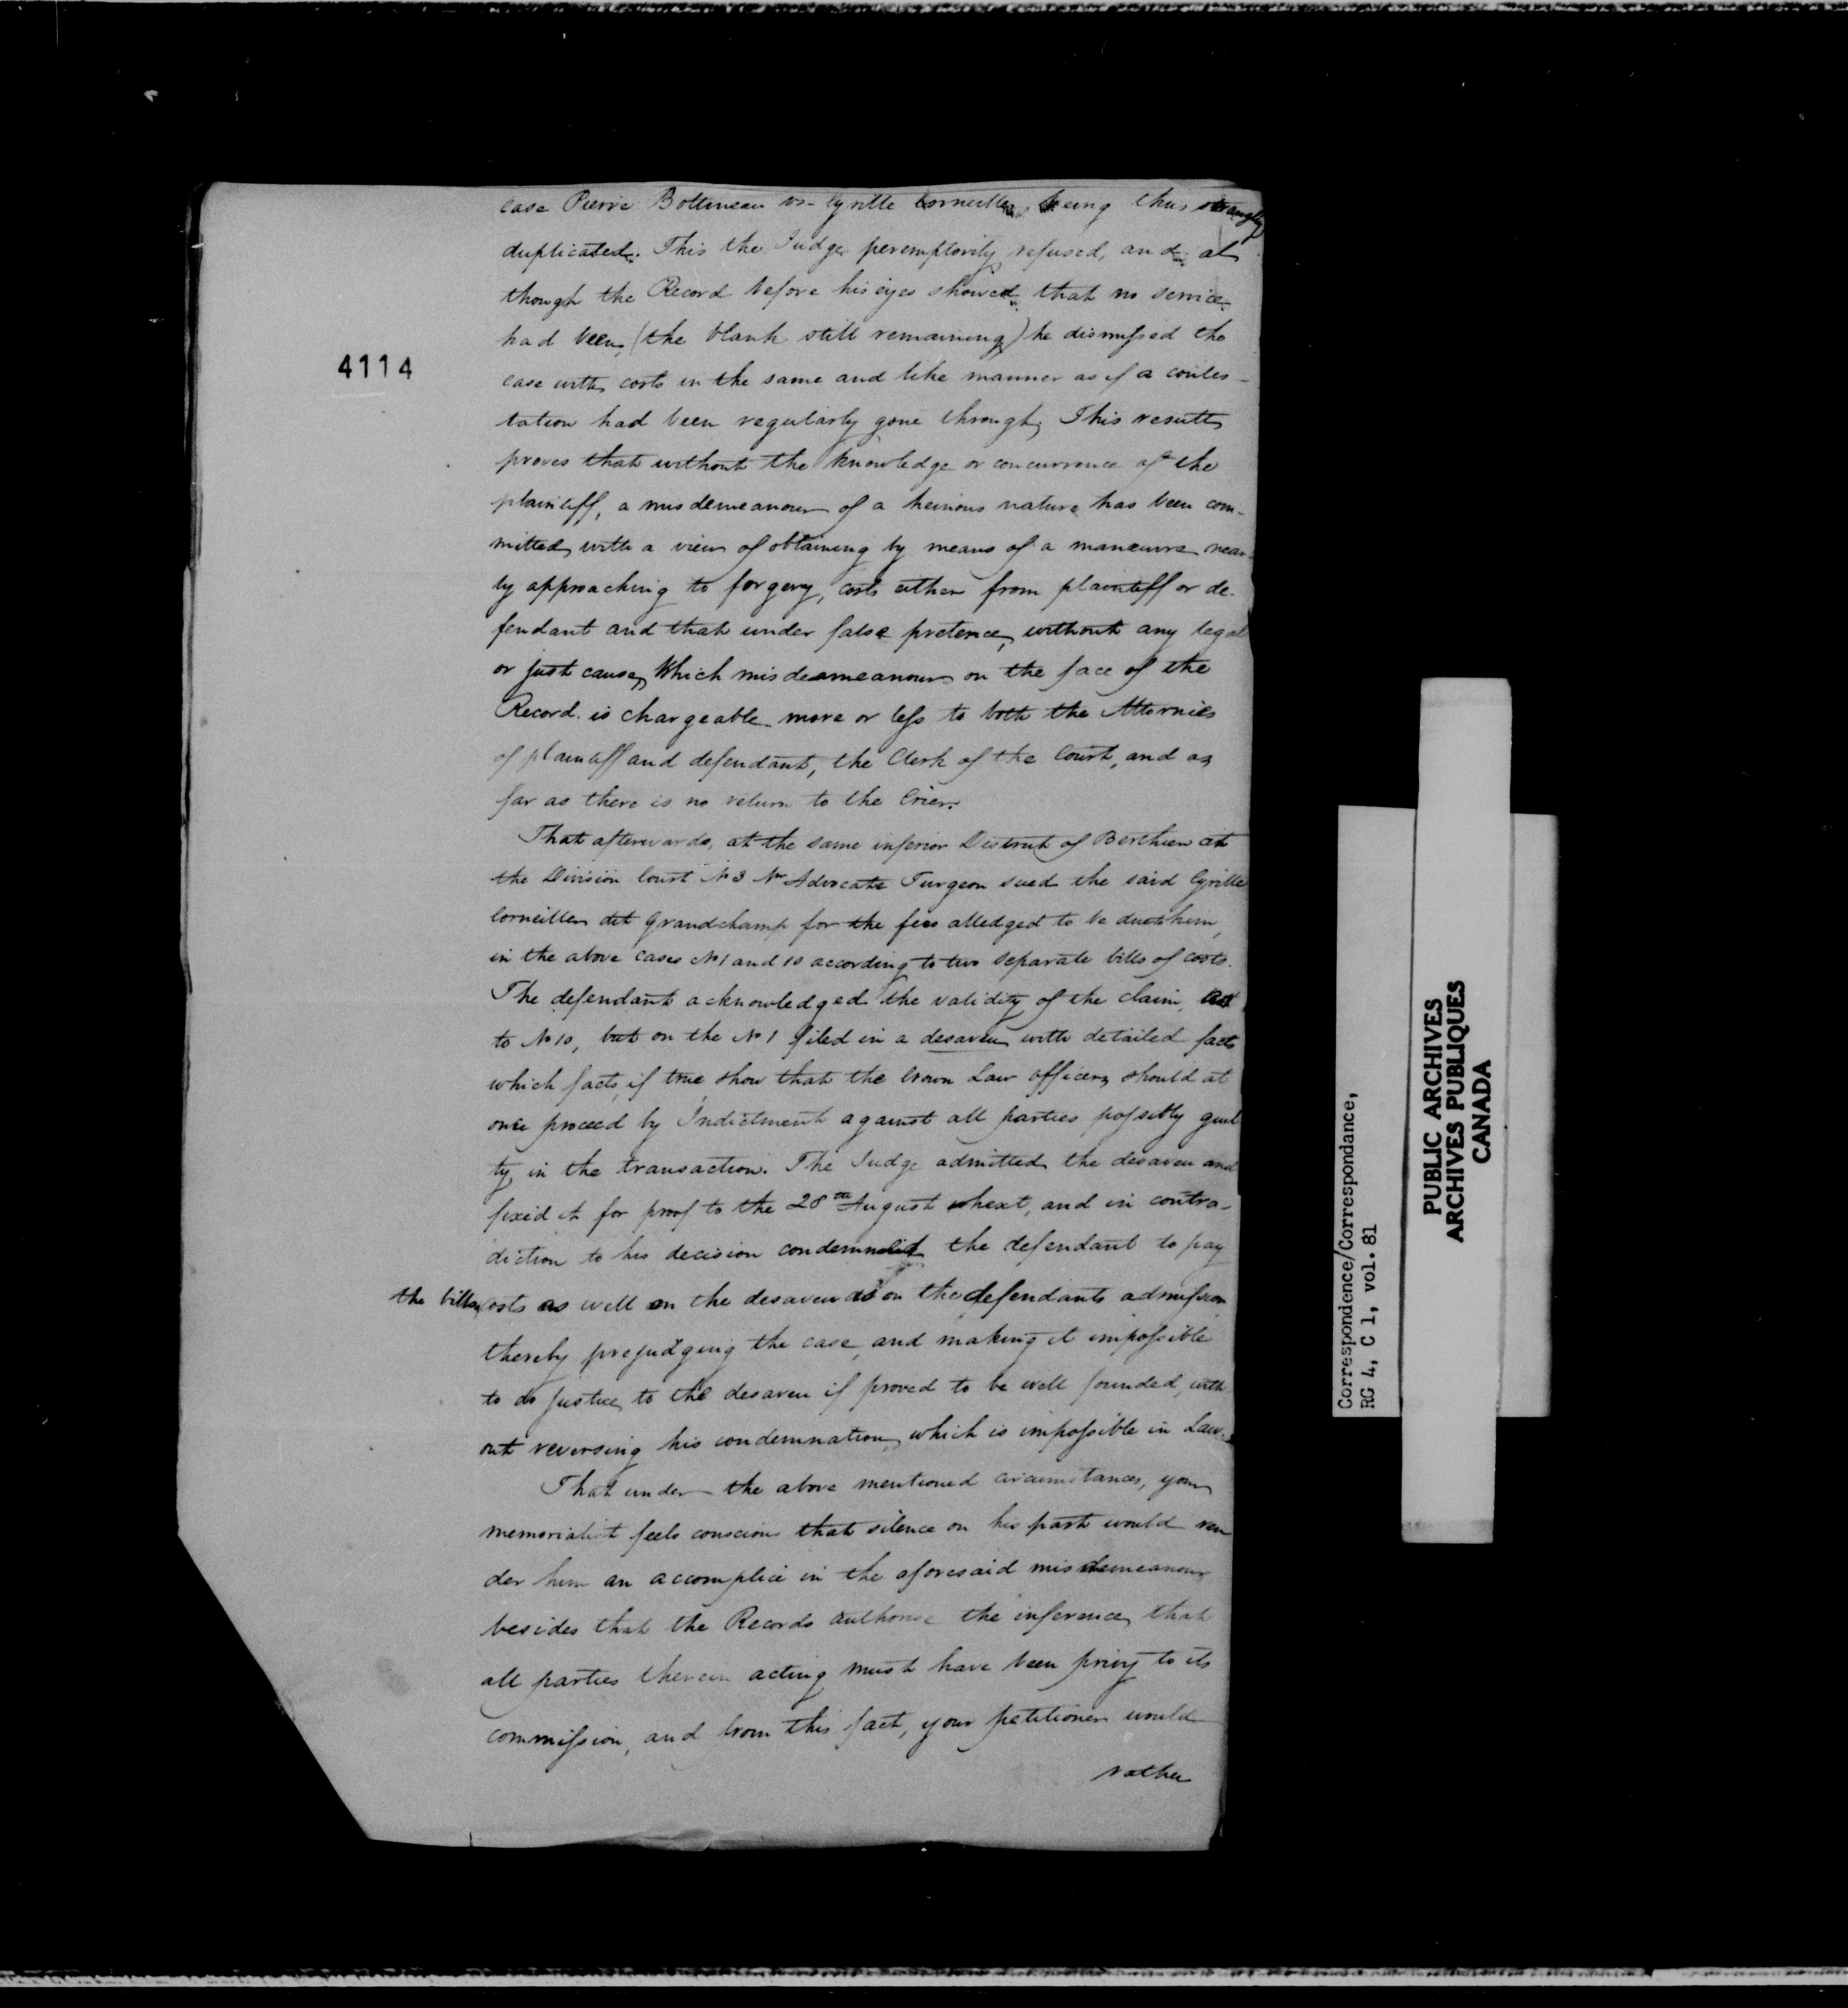 case Pierre Bottineau vs- Cyrille Corneiller being thus strangely
duplicated. This the Judge peremptorily refused, and al
though the Record before his eyes showed that no service
had been, (the blank still remaining) he dismissed the
4114
case with costs in the same and like manner as if a contes-
tation had been regularly gone through. This result
proves that without the knowledge or concurrence of the
plaintiff, a misdemeanour of a heinous nature has been com-
mitted with a view of obtaining by means of a manœuvre near-
ly approaching to forgery, costs either from plaintiff or de-
fendant and that under false pretence, without any legal
or just cause, Which misdemeanour on the face of the
Record is chargeable more or less to both the Attornies
of plaintiff and defendant, the Clerk of the Court, and as
far as there is no return to the Crier.
That afterwards, at the same inferior District of Berthier at
the Division Court No 3 Mr Advocate Turgeon sued the said Cyrille
Corneiller dit Grandchamp for the fees alledged to be due to him,
in the above cases No 1 and 10 according to two separate bills of costs.
The defendant acknowledged the validity of the claim, as
to No 10, but on the No 1 filed in a desaveu with detailed facts
which facts, if true show that the Crown Law officers should at
once proceed by Indictment against all parties possibly guil
ty in the transaction. The Judge admitted the desaveu and
fixed it for proof to the 28th August next, and in contra-
diction to his decision condemned the defendant to pay
the bills costs as well on the desaveu as on the defendants admission
thereby prejudging the case, and making it impossible
to do justice to the desaveu if proved to be well founded, with
out reversing his condemnation, which is impossible in Law.
That under the above mentioned circumstances, your
memorialist feels conscious that silence on his part would ren
der him an accomplice in the aforesaid misdemeanour
besides that the Records authorise the inference that
all parties therein acting must have been privy to its
commission, and from this fact, your petitioner would
rather
Correspondence/Correspondance,
RG 4, C 1, vol. 81
PUBLIC ARCHIVES
ARCHIVES PUBLIQUES
CANADA